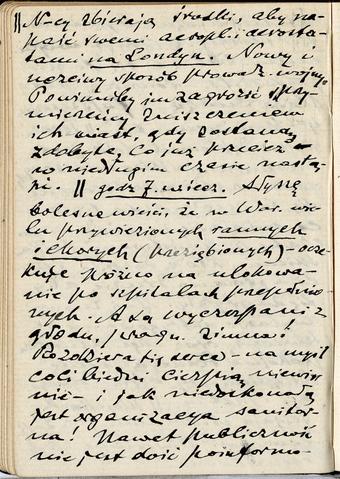 || N-cy zbierają środki, aby na-
paść swemi aeropl. i aerosta-
tami na Londyn. Nowy i
uczciwy sposób prowadz. wojny
Powinniby im zagrozić
zniszczeniem
ich miast, gdy zostaną
zdobyte, co już przecież
w niedługim czasie nastą-
pi. || godz 7. wiecz. Słyszę
bolesne wieści, że w War. wie-
lu przywiezionych rannych
i chorych (przeziębionych) - ocze-
kuje późno na ulokowa-
nie po szpitalach przepełnio-
nych. A są wyczerpani z
głodu, zimna!
Rozdziera się serce - na myśl
co ci biedni cierpią niewin-
nie - i jak niedoskonałą
jest organizacya sanitar-
na! Nawet publiczność
nie jest dość poinformo-